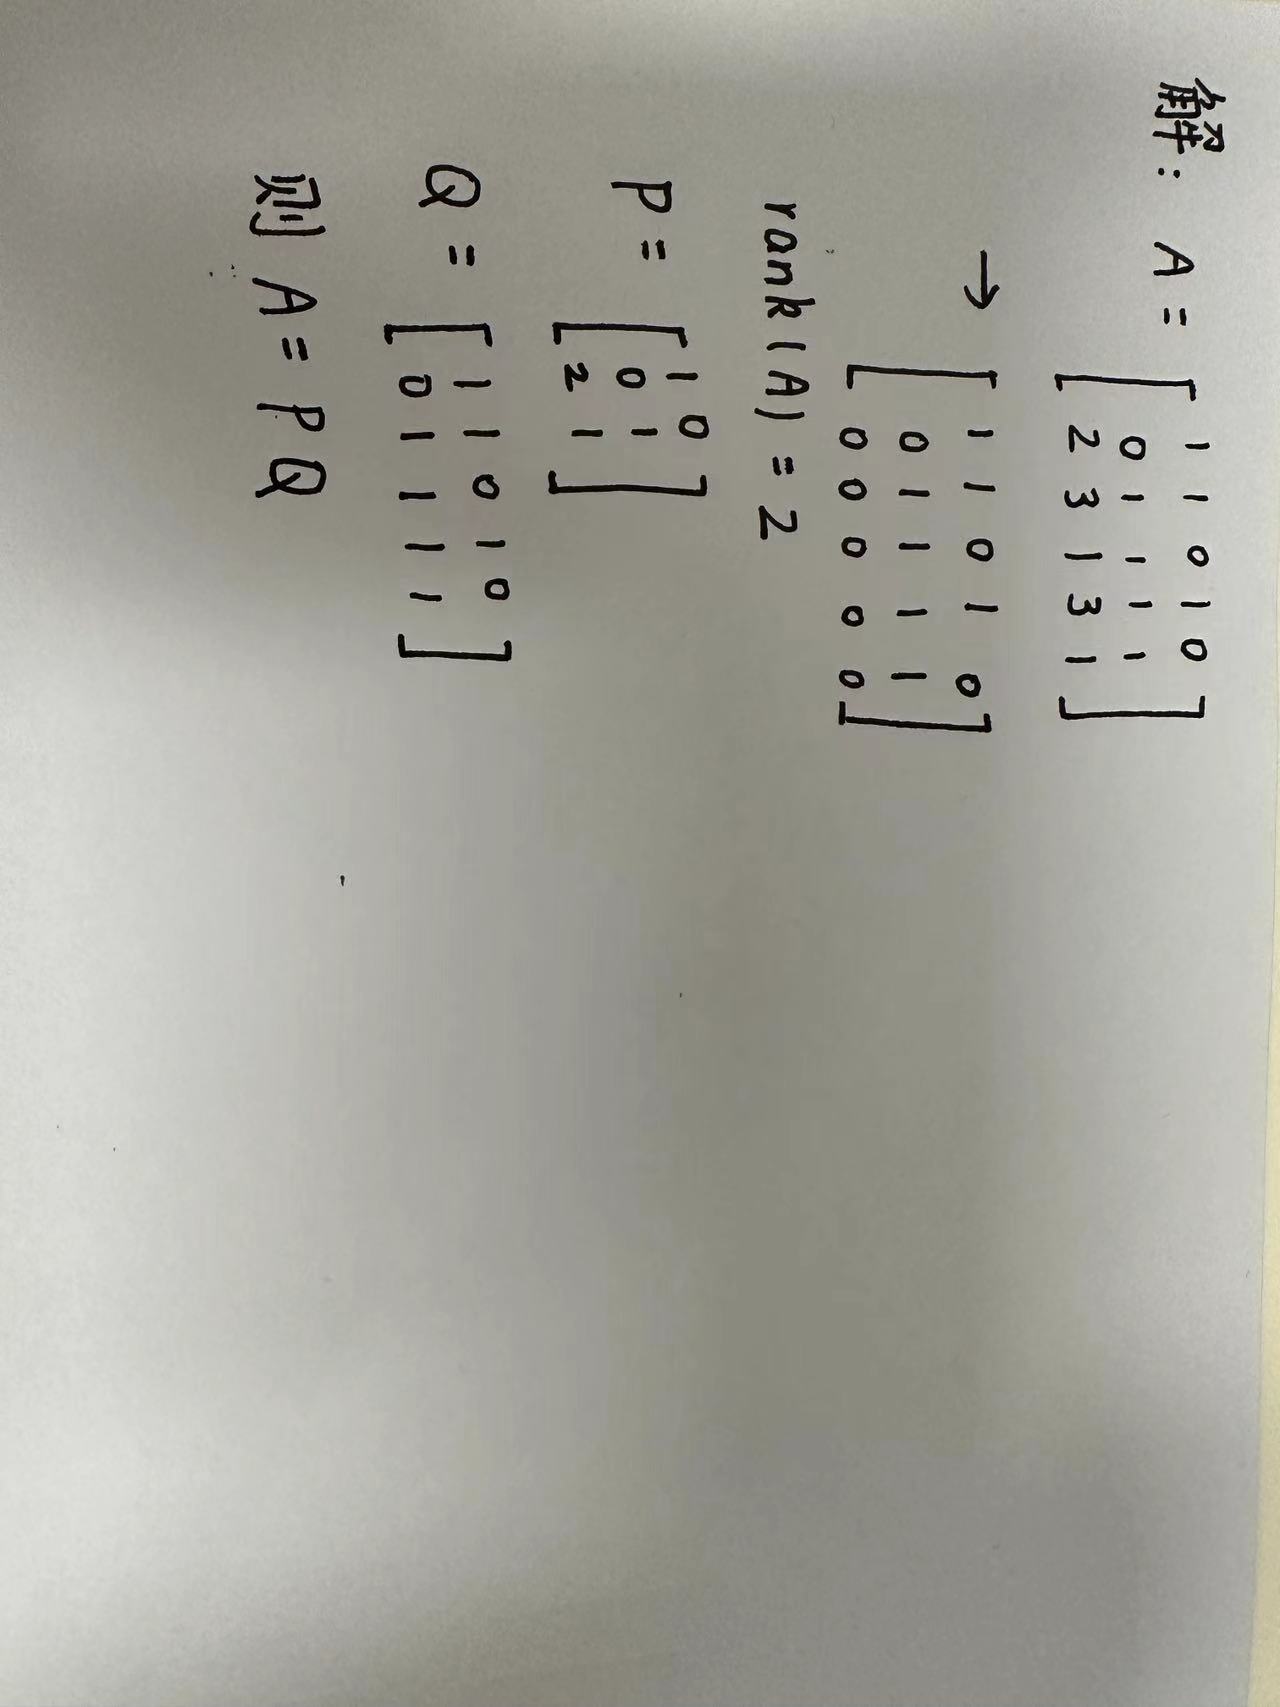 解: A = [ 1 1 0 1 0
0 1 1 1 1
2 3 1 3 1 ]
→ [ 1 1 0 1 0
0 1 1 1 1
0 0 0 0 0 ]
rank(A) = 2
P = [ 1 0
0 1
2 1 ]
Q = [ 1 1 0 1 0
0 1 1 1 1 ]
则 A = PQ